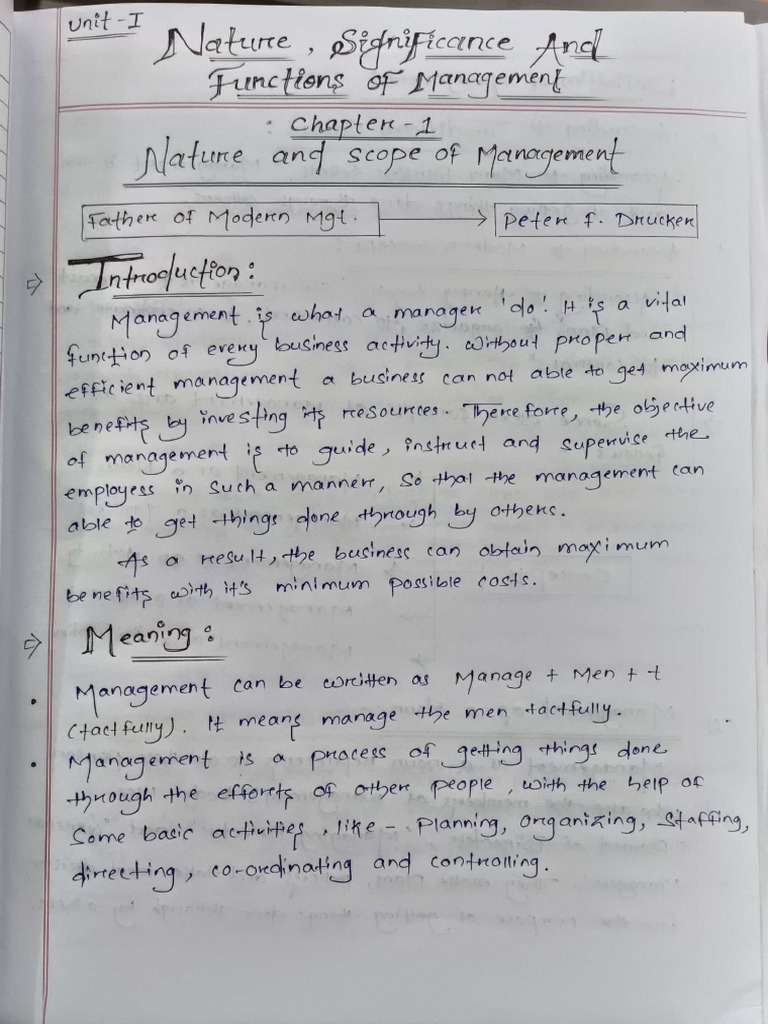 Unit-I
Nature, Significance And
Functions of Management
: Chapter-1
Nature and scope of Management
Father of Modern Mgt. → Peter F. Drucker
⇒ Introduction:
Management is what a manager 'do'. It is a vital
function of every business activity. Without proper and
efficient management a business can not able to get maximum
benefits by investing its resources. Therefore, the objective
of management is to guide, instruct and supervise the
employess in such a manner, so that the management can
able to get things done through by others.
As a result, the business can obtain maximum
benefits with it's minimum possible costs.
⇒ Meaning:
• Management can be written as Manage + Men + t
(tactfully). It means manage the men tactfully.
• Management is a process of getting things done
through the efforts of other people, with the help of
some basic activities, like - Planning, organizing, staffing,
directing, co-ordinating and controlling.